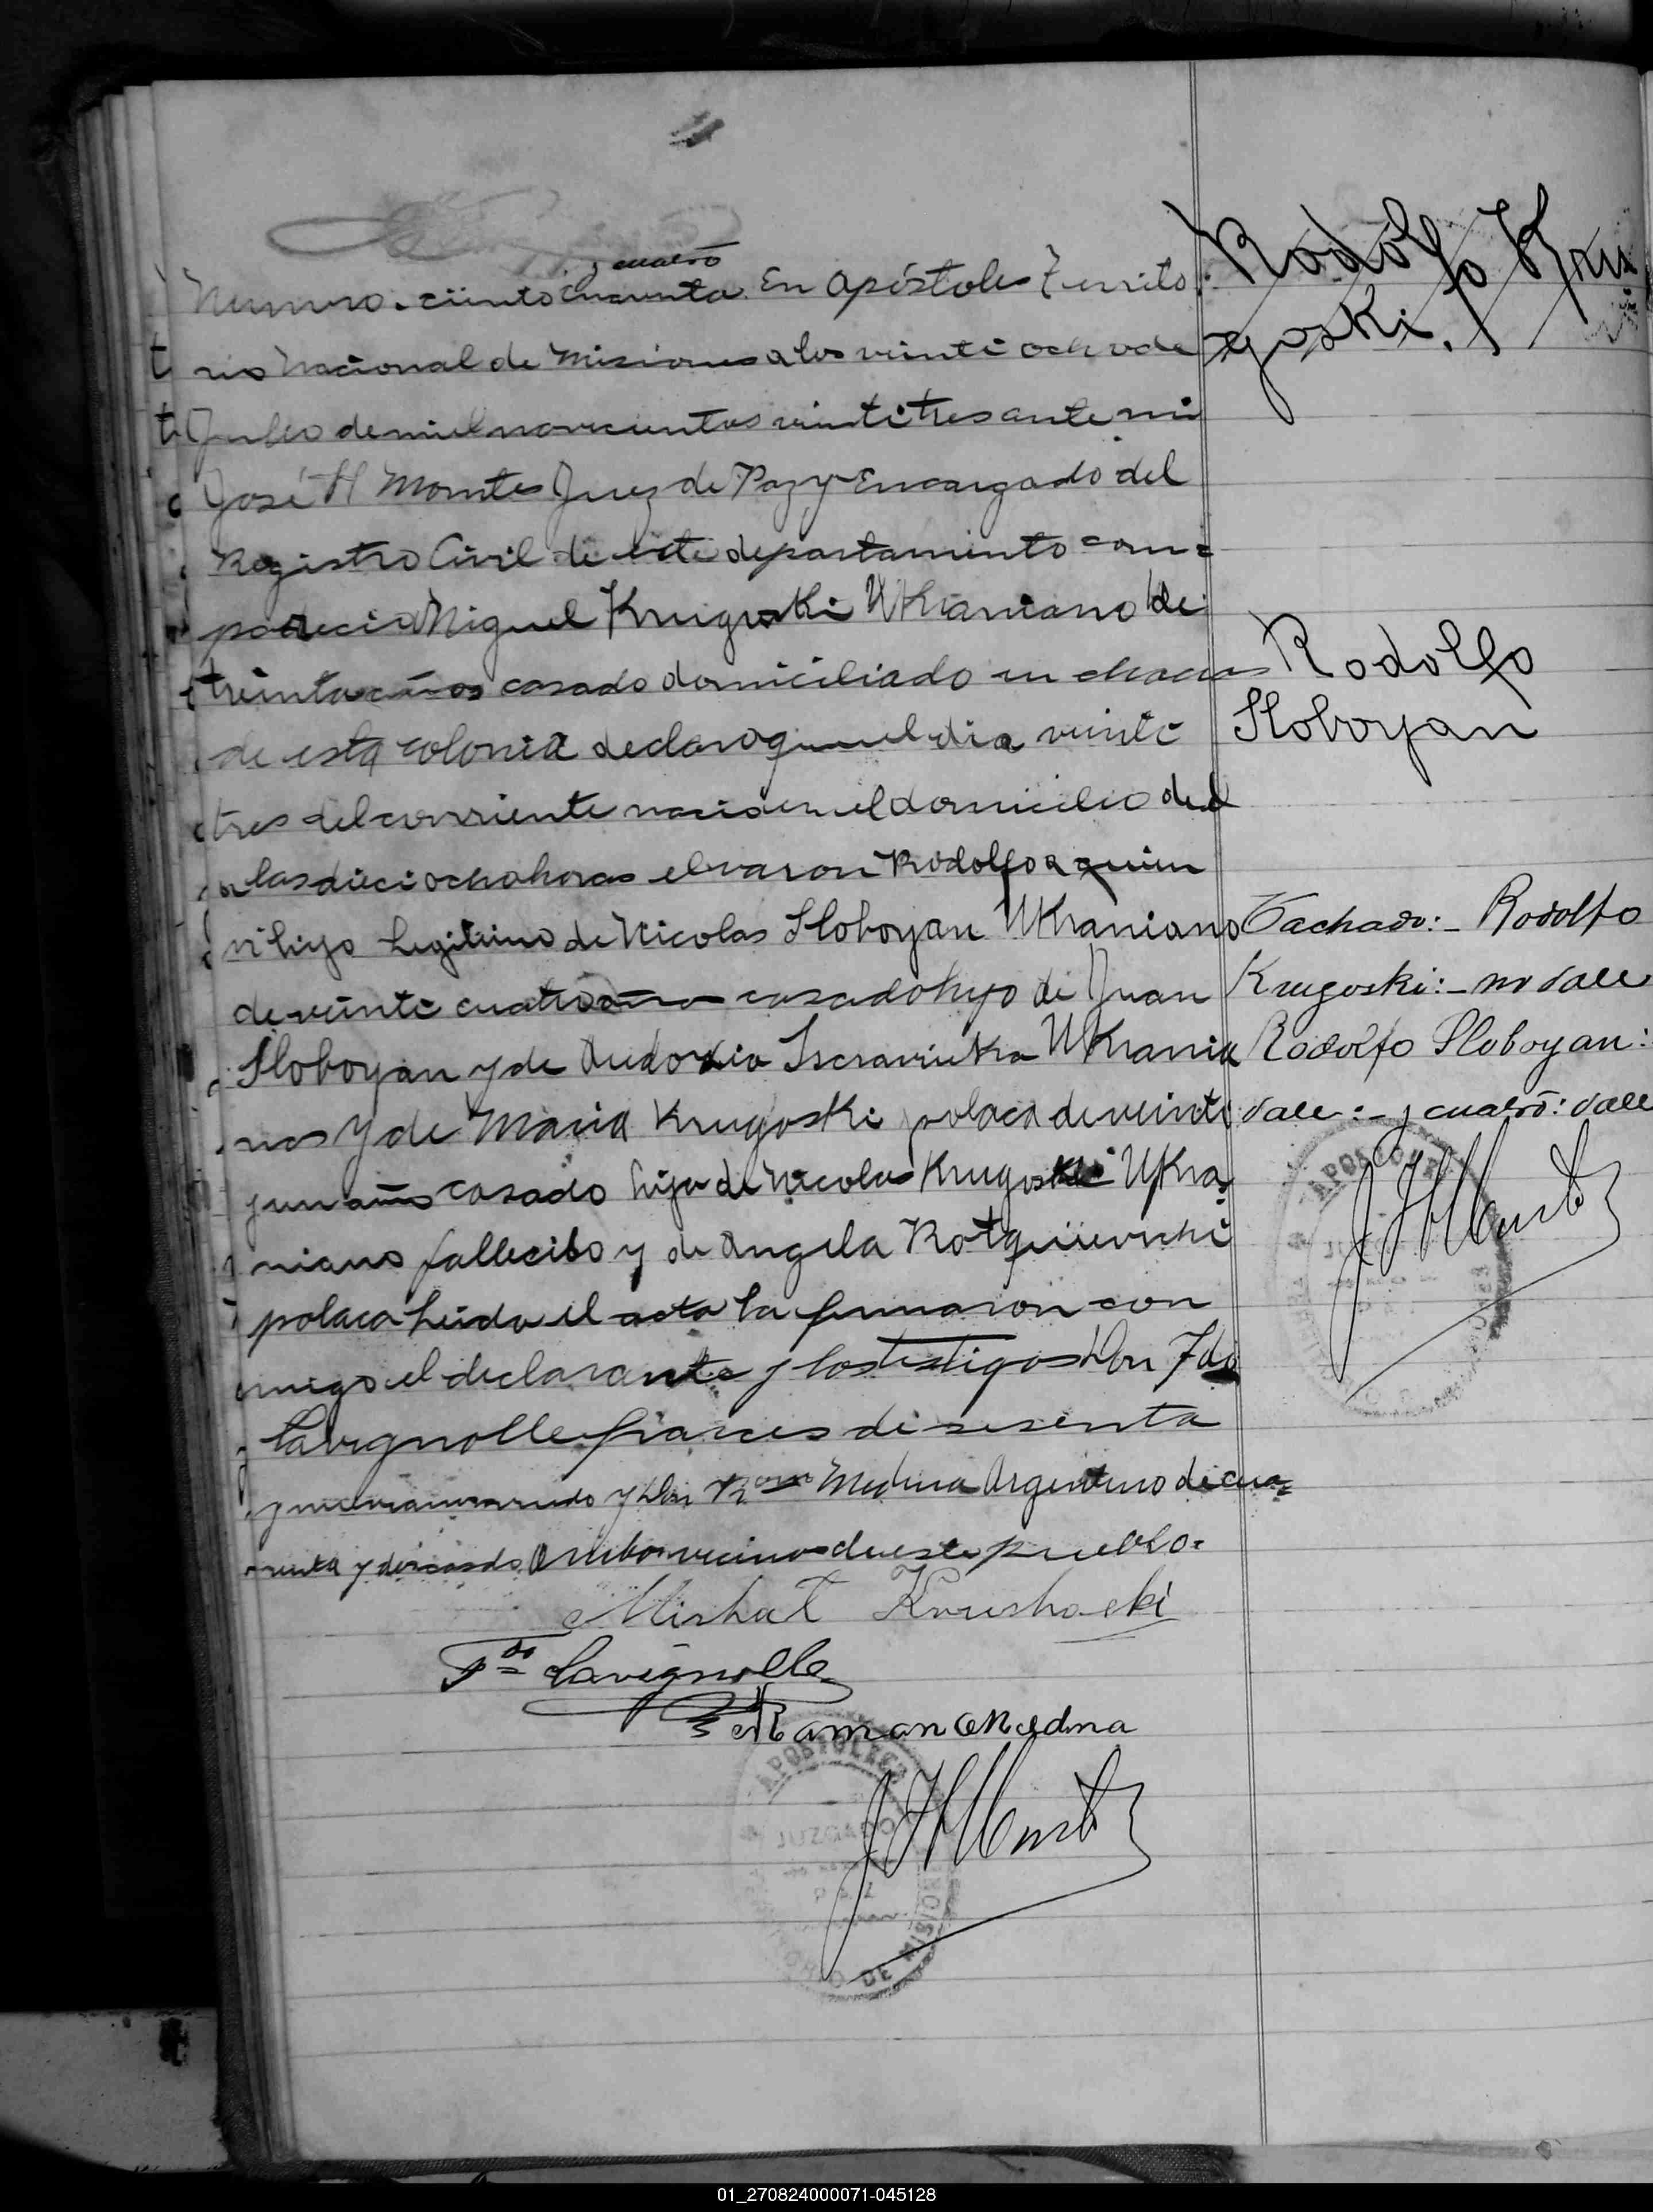 y cuatro
Numero ciento cincuenta. En Apóstoles Territo
rio Nacional de Misiones a los veinte ocho de
Julio de mil novecientos veinte tres ante mi
José H Montes Juez de Paz y Encargado del
Registro Civil de este departamento com=
parecia Miguel Krugoski Ukraniano de
treinta años casado domiciliado en chacras
de esta colonia declaro que el dia veinte
tres del corriente nacio en el domicilio del
a las dieciocho horas el varon Rodolfo a quien
vi hijo legitimo de Nicolas Sloboyan Ukraniano
de veinte cuatro años casado hijo de Juan
Sloboyan y de Ukrania
nos y de Maria Krugoski polaca de veinte
y un años casado hija de Nicolas Krugoski Ukra
niano fallecido y de Angela
polaca Leida el acta la firmaron con
migo el declarante y los testigos Don Fdo
Lavignolle frances de sesenta
y y Don Ramon Medina Argentino de cua=
renta y dos casado Ambos vecinos de este pueblo=
Mishat Krushoski
Fdo Lavignolle
Ramon Medina
JHMontes
APOSTOLES
JUZGADO
DE
PAZ
DE MISIONES
Rodolfo Kru
goski.
Rodolfo
Sloboyan
Tachado:- Rodolfo
Krugoski:- no vale
Rodolfo Sloboyan:
vale:- y cuatro: vale
JHMontes
APOSTOLES
01_270824000071-045128